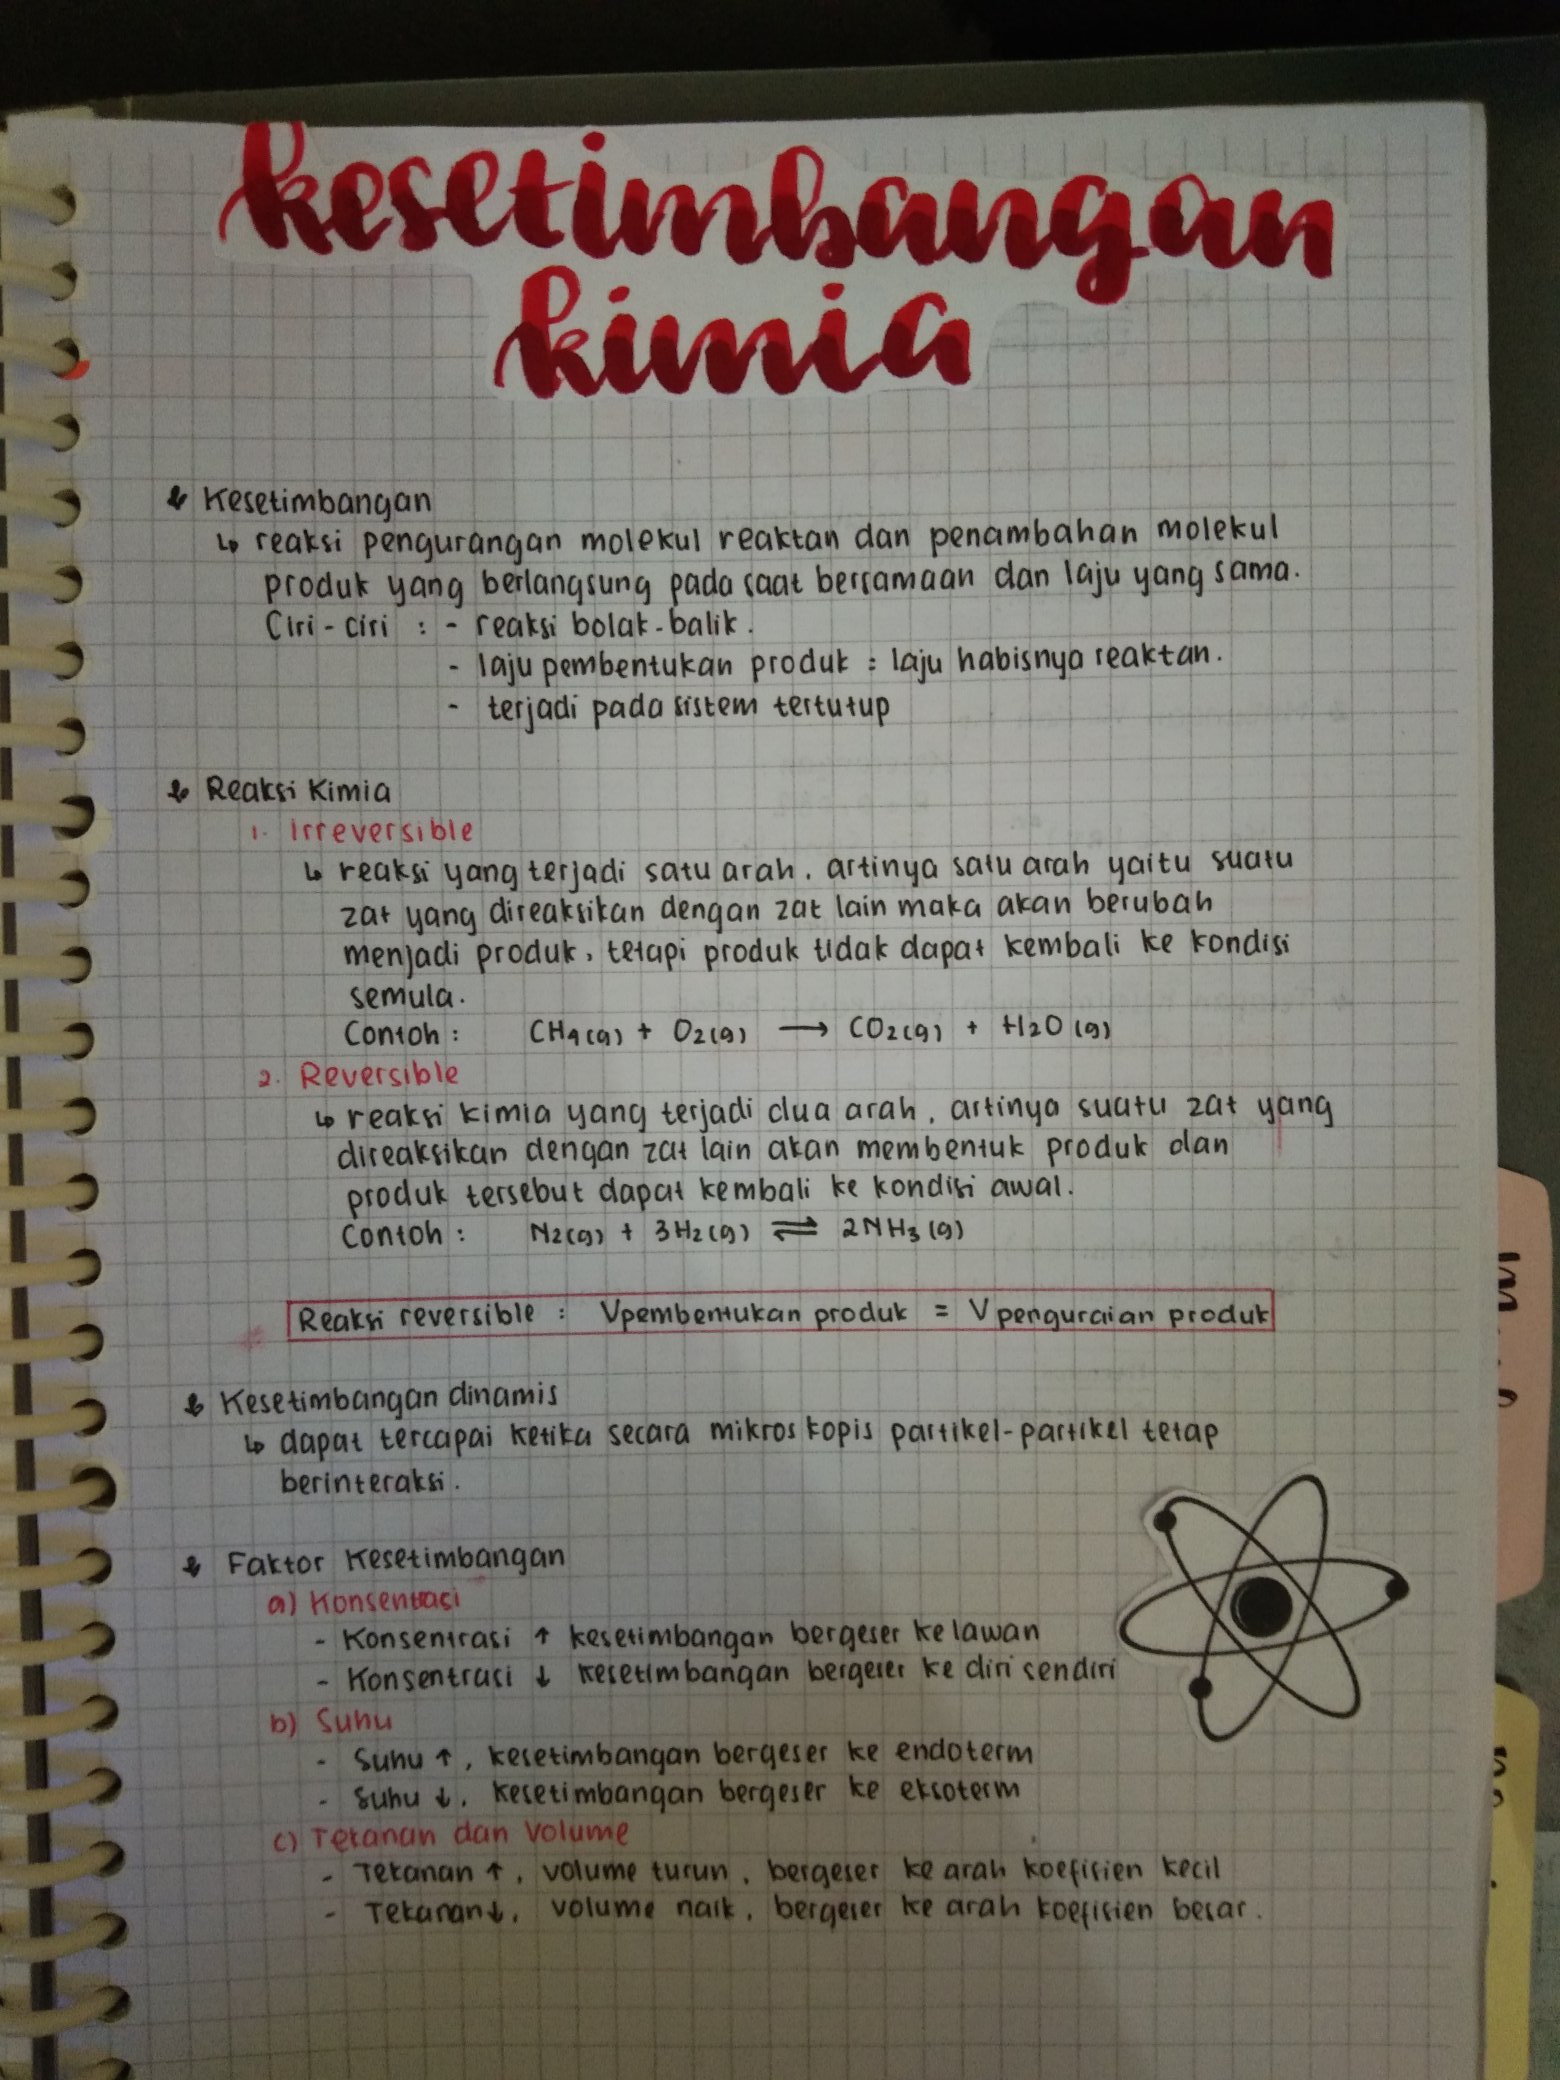 kesetimbangan
kimia
Kesetimbangan
↳ reaksi pengurangan molekul reaktan dan penambahan molekul
produk yang berlangsung pada saat bersamaan dan laju yang sama.
Ciri-ciri : - reaksi bolak-balik.
- laju pembentukan produk = laju habisnya reaktan.
- terjadi pada sistem tertutup
Reaksi Kimia
1. Irreversible
↳ reaksi yang terjadi satu arah, artinya satu arah yaitu suatu
zat yang direaksikan dengan zat lain maka akan berubah
menjadi produk, tetapi produk tidak dapat kembali ke kondisi
semula.
Contoh : CH4(g) + O2(g) → CO2(g) + H2O(g)
2. Reversible
↳ reaksi kimia yang terjadi dua arah, artinya suatu zat yang
direaksikan dengan zat lain akan membentuk produk dan
produk tersebut dapat kembali ke kondisi awal.
Contoh : N2(g) + 3H2(g) ⇌ 2NH3(g)
Reaksi reversible : Vpembentukan produk = Vpenguraian produk
Kesetimbangan dinamis
↳ dapat tercapai ketika secara mikroskopis partikel-partikel tetap
berinteraksi.
Faktor Kesetimbangan
a) Konsentrasi
- Konsentrasi ↑ kesetimbangan bergeser ke lawan
- Konsentrasi ↓ kesetimbangan bergeser ke diri sendiri
b) Suhu
- Suhu ↑, kesetimbangan bergeser ke endoterm
- Suhu ↓, kesetimbangan bergeser ke eksoterm
c) Tekanan dan Volume
- Tekanan ↑, volume turun, bergeser ke arah koefisien kecil
- Tekanan ↓, volume naik, bergeser ke arah koefisien besar.